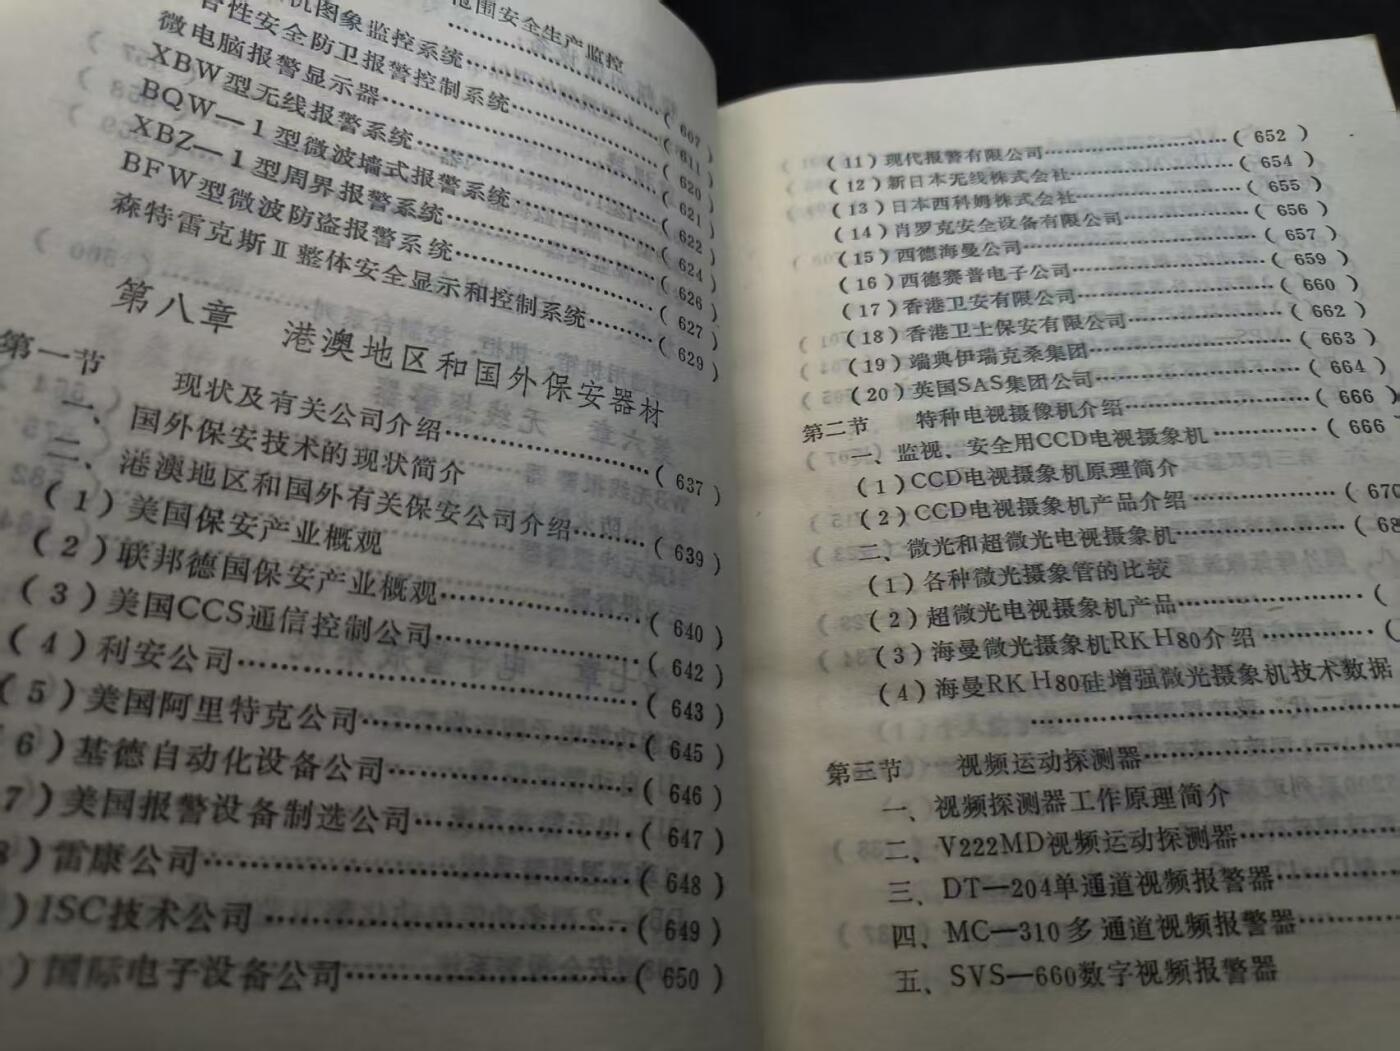 范围安全生产监控
机图象监控系统………………
合性安全防卫报警控制系统………………(607)
微电脑报警显示器………………(611)
XBW型无线报警系统………………(620)
BQW—1型微波墙式报警系统………………(621)
XBZ—1型周界报警系统………………(622)
BFW型微波防盗报警系统………………(624)
森特雷克斯Ⅱ整体安全显示和控制系统………(629)
第八章 港澳地区和国外保安器材
第一节 现状及有关公司介绍………………(637)
一、国外保安技术的现状简介
二、港澳地区和国外有关保安公司介绍………(639)
(1)美国保安产业概观
(2)联邦德国保安产业概观………………(640)
(3)美国CCS通信控制公司………………(642)
(4)利安公司………………(643)
(5)美国阿里特克公司………………(645)
6)基德自动化设备公司………………(646)
7)美国报警设备制选公司………………(647)
8)雷康公司………………(648)
)ISC技术公司………………(649)
)国际电子设备公司………………(650)
(11)现代报警有限公司………………(652)
(12)新日本无线株式会社………………(654)
(13)日本西科姆株式会社………………(655)
(14)肖罗克安全设备有限公司………………(656)
(15)西德海曼公司………………(657)
(16)西德赛普电子公司………………(659)
(17)香港卫安有限公司………………(660)
(18)香港卫士保安有限公司………………(662)
(19)瑞典伊瑞克桑集团………………(663)
(20)英国SAS集团公司………………(664)
第二节 特种电视摄像机介绍………………(666)
一、监视、安全用CCD电视摄象机…………(666)
(1)CCD电视摄象机原理简介
(2)CCD电视摄象机产品介绍……………(670
二、微光和超微光电视摄象机………………(68
(1)各种微光摄象管的比较
(2)超微光电视摄象机产品………………(
(3)海曼微光摄象机RKH80介绍…………(
(4)海曼RKH80硅增强微光摄象机技术数据
………………
第三节 视频运动探测器………………
一、视频探测器工作原理简介
二、V222MD视频运动探测器………………
三、DT—204单通道视频报警器………………
四、MC—310多通道视频报警器………………
五、SVS—660数字视频报警器